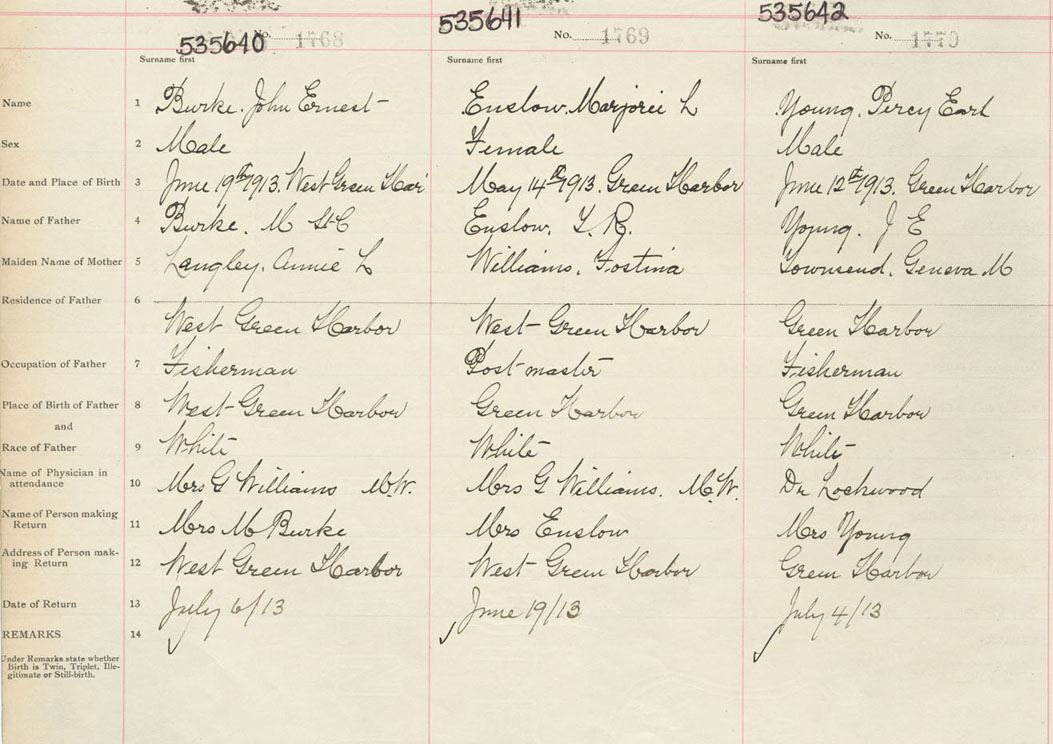 535640 No. 1768 535641 No. 1769 535642 No. 1770
Surname first Surname first Surname first
Name 1 Burke. John Ernest Enslow. Marjorei L Young. Percy Earl
Sex 2 Male Female Male
Date and Place of Birth 3 June 19th 1913. West Green Har' May 14th 1913. Green Harbor June 12th 1913. Green Harbor
Name of Father 4 Burke. M St C Enslow. T. R. Young. J E
Maiden Name of Mother 5 Langley. Annie L Williams. Fostina Townsend. Geneva M
Residence of Father 6
West Green Harbor West Green Harbor Green Harbor
Occupation of Father 7 Fisherman Post master Fisherman
Place of Birth of Father 8 West Green Harbor Green Harbor Green Harbor
and
Race of Father 9 White White White
Name of Physician in
attendance 10 Mrs G Williams M.W. Mrs G Williams. M.W. Dr Lockwood
Name of Person making
Return 11 Mrs M Burke Mrs Enslow Mrs Young
Address of Person mak-
ing Return 12 West Green Harbor West Green Harbor Green Harbor
Date of Return 13 July 6/13 June 19/13 July 4/13
REMARKS 14
Under Remarks state whether
Birth is Twin, Triplet, Ille-
gitimate or Still-birth.